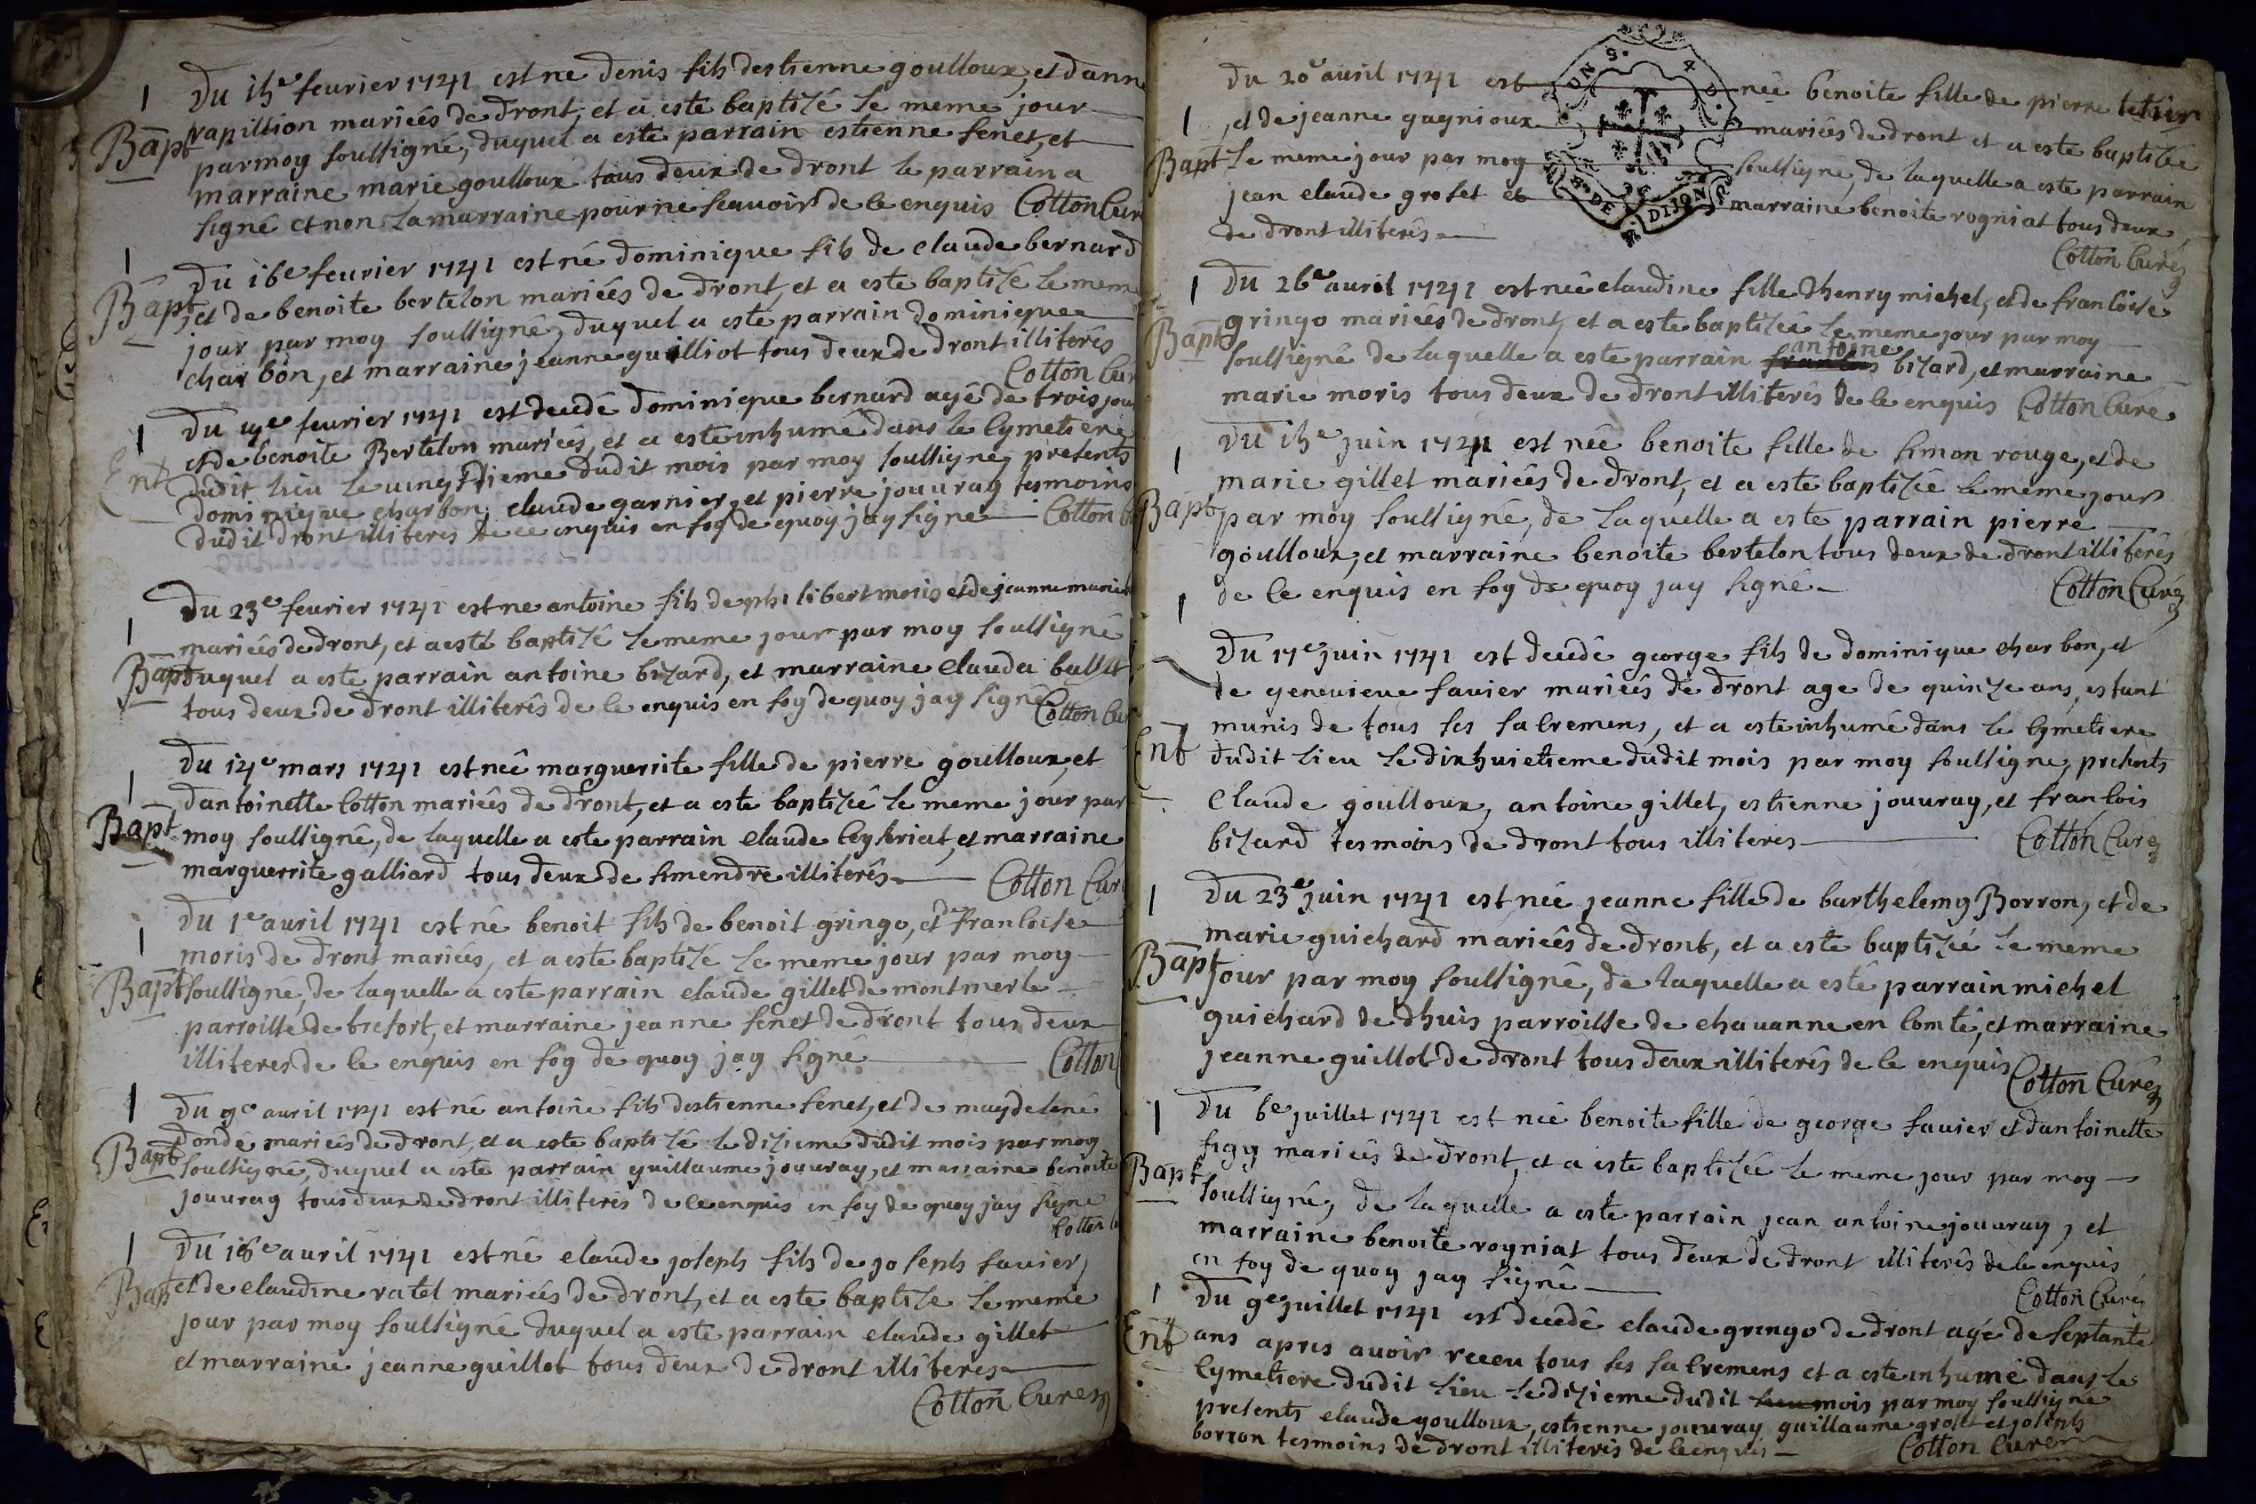 1
Du 15e feurier 1741 est ne denis fils destienne goulloux, et danne
Bapt
rapillion mariés de dront, et a este baptizé le meme jour
par moy soussigné, duquel a este parrain estienne senet, et
marraine marie goulloux tous deux de dront le parrain a
signé et non la marraine pour ne scauoir de ce enquis Cotton Cur
1
Du 16e feurier 1741 est né dominique fils de claude bernard
Bapt
, et de benoite bertelon mariés de dront, et a este baptizé le meme
jour par moy soussigné, duquel a este parrain dominique
charbon, et marraine jeanne guilliot tous deux de dront illiterés
Cotton Cur
1
Du 19e feurier 1741 est decedé dominique bernard agé de trois jou
Ent
et de benoite Bertelon mariés, et a este inhumé dans le Cymetiere
dudit lieu le vingtieme dudit mois par moy soussigné, presents
dominique charbon, claude garnier, et pierre jouuray tesmoins
dudit dront illiteres de ce enquis en foy de quoy jay signe Cotton C
1
Du 23e feurier 1741 est ne antoine fils de philibert moris et de jeanne marie
mariés de dront, et a esté baptizé le meme jour par moy soussigné
Bapt
duquel a este parrain antoine bizard, et marraine clauda ballet
tous deux de dront illiterés de ce enquis en foy de quoy jay signé Cotton Cur
1
Du 14e mars 1741 est née marguerrite fille de pierre goulloux, et
dantoinette Cotton mariés de dront, et a este baptizée le meme jour par
Bapt
moy soussigné, de laquelle a este parrain claude Ceyzeriat, et marraine
marguerrite galliard tous deux de simendre illiterés Cotton Cur
1
Du 1e auril 1741 est né benoit fils de benoit gringo, et de francoise
moris de dront mariés, et a este baptizé le meme jour par moy
Bapt
soussigné, de laquelle a este parrain claude gillet de montmerle
parroisse de trefort, et marraine jeanne senet de dront tous deux
illiteres de ce enquis en foy de quoy jay signé Cotton C
1
Du 9e auril 1741 est né antoine fils destienne senet, et de maydelené
dondé mariés de dront, et a este baptizé le dizieme dudit mois par moy
Bapt
soussigné, duquel a este parrain guillaume jouuray, et marraine benoite
jouuray tous deux de dront illiterés de ce enquis en foy de quoy jay signe
Cotton C
1
Du 18e auril 1741 est né claude joseph fils de joseph sauier,
Bap
et de claudine ratel mariés de dront, et a este baptize le meme
jour par moy soussigné duquel a este parrain claude gillet
et marraine jeanne guillot tous deux de dront illiteres
Cotton Cure
Du 20e auril 1741 est née benoite fille de pierre tetier
1
, et de jeanne gagnioux mariés de dront et a este baptizée
Bapt
le meme jour par moy soussigné, de laquelle a este parrain
jean claude groset et marraine benoite rogniat tous deux
de dront illiterés
Cotton Curé
GEN DE DIJON
1
Du 26e auril 1741 est née claudine fille dhenry michel, et de francoise
gringo mariés de dront, et a este baptizée le meme jour par moy
Bapt
soussigné de laquelle a este parrain francois antoine bizard, et marraine
marie moris tous deux de dront illiterés de ce enquis Cotton Cure
1
Du 15e juin 1741 est née benoite fille de simon rouge, et de
marie gillet mariés de dront, et a este baptizée le meme jour
Bapt
par moy soussigné, de laquelle a este parrain pierre
goulloux, et marraine benoite bertelon tous deux de dront illiterés
de ce enquis en foy de quoy jay signé Cotton Curé
1
Du 17e juin 1741 est decedé george fils de dominique charbon, et
de geneuieue sauier mariés de dront age de quinze ans, estant
munis de tous ses sacremens, et a este inhumé dans le Cymetiere
Ent
dudit lieu le dixhuictieme dudit mois par moy soussigné, presents
Claude goulloux, antoine gillet, estienne jouuray, et francois
bizard tesmoins de dront tous illiteres Cotton Cure
1
Du 23e juin 1741 est née jeanne fille de barthelemy Borron, et de
marie guichard mariés de dront, et a este baptizée le meme
Bapt
jour par moy soussigné, de laquelle a esté parrain michel
guichard de dhuis parroisse de chauanne en Comté, et marraine
jeanne guillot de dront tous deux illiterés de ce enquis
Cotton Curé
1
Du 6e juillet 1741 est née benoite fille de george sauier et dantoinette
figy mariés de dront, et a este baptizée le meme jour par moy
Bapt
soussigné, de laquelle a este parrain jean antoine jouuray, et
marraine benoite rogniat tous deux de dront illiterés de ce enquis
en foy de quoy jay signé
Cotton Curé
1
Du 9e juillet 1741 est decedé claude gringo de dront agé de septante
Ent
ans apres auoir receu tous ses sacremens et a este inhumé dans le
Cymetiere dudit lieu le dizieme dudit lieu mois par moy soussigné
presents claude goulloux, estienne jouuray guillaume groset et joseph
borron tesmoins de dront illiterés de ce enquis Cotton Cure